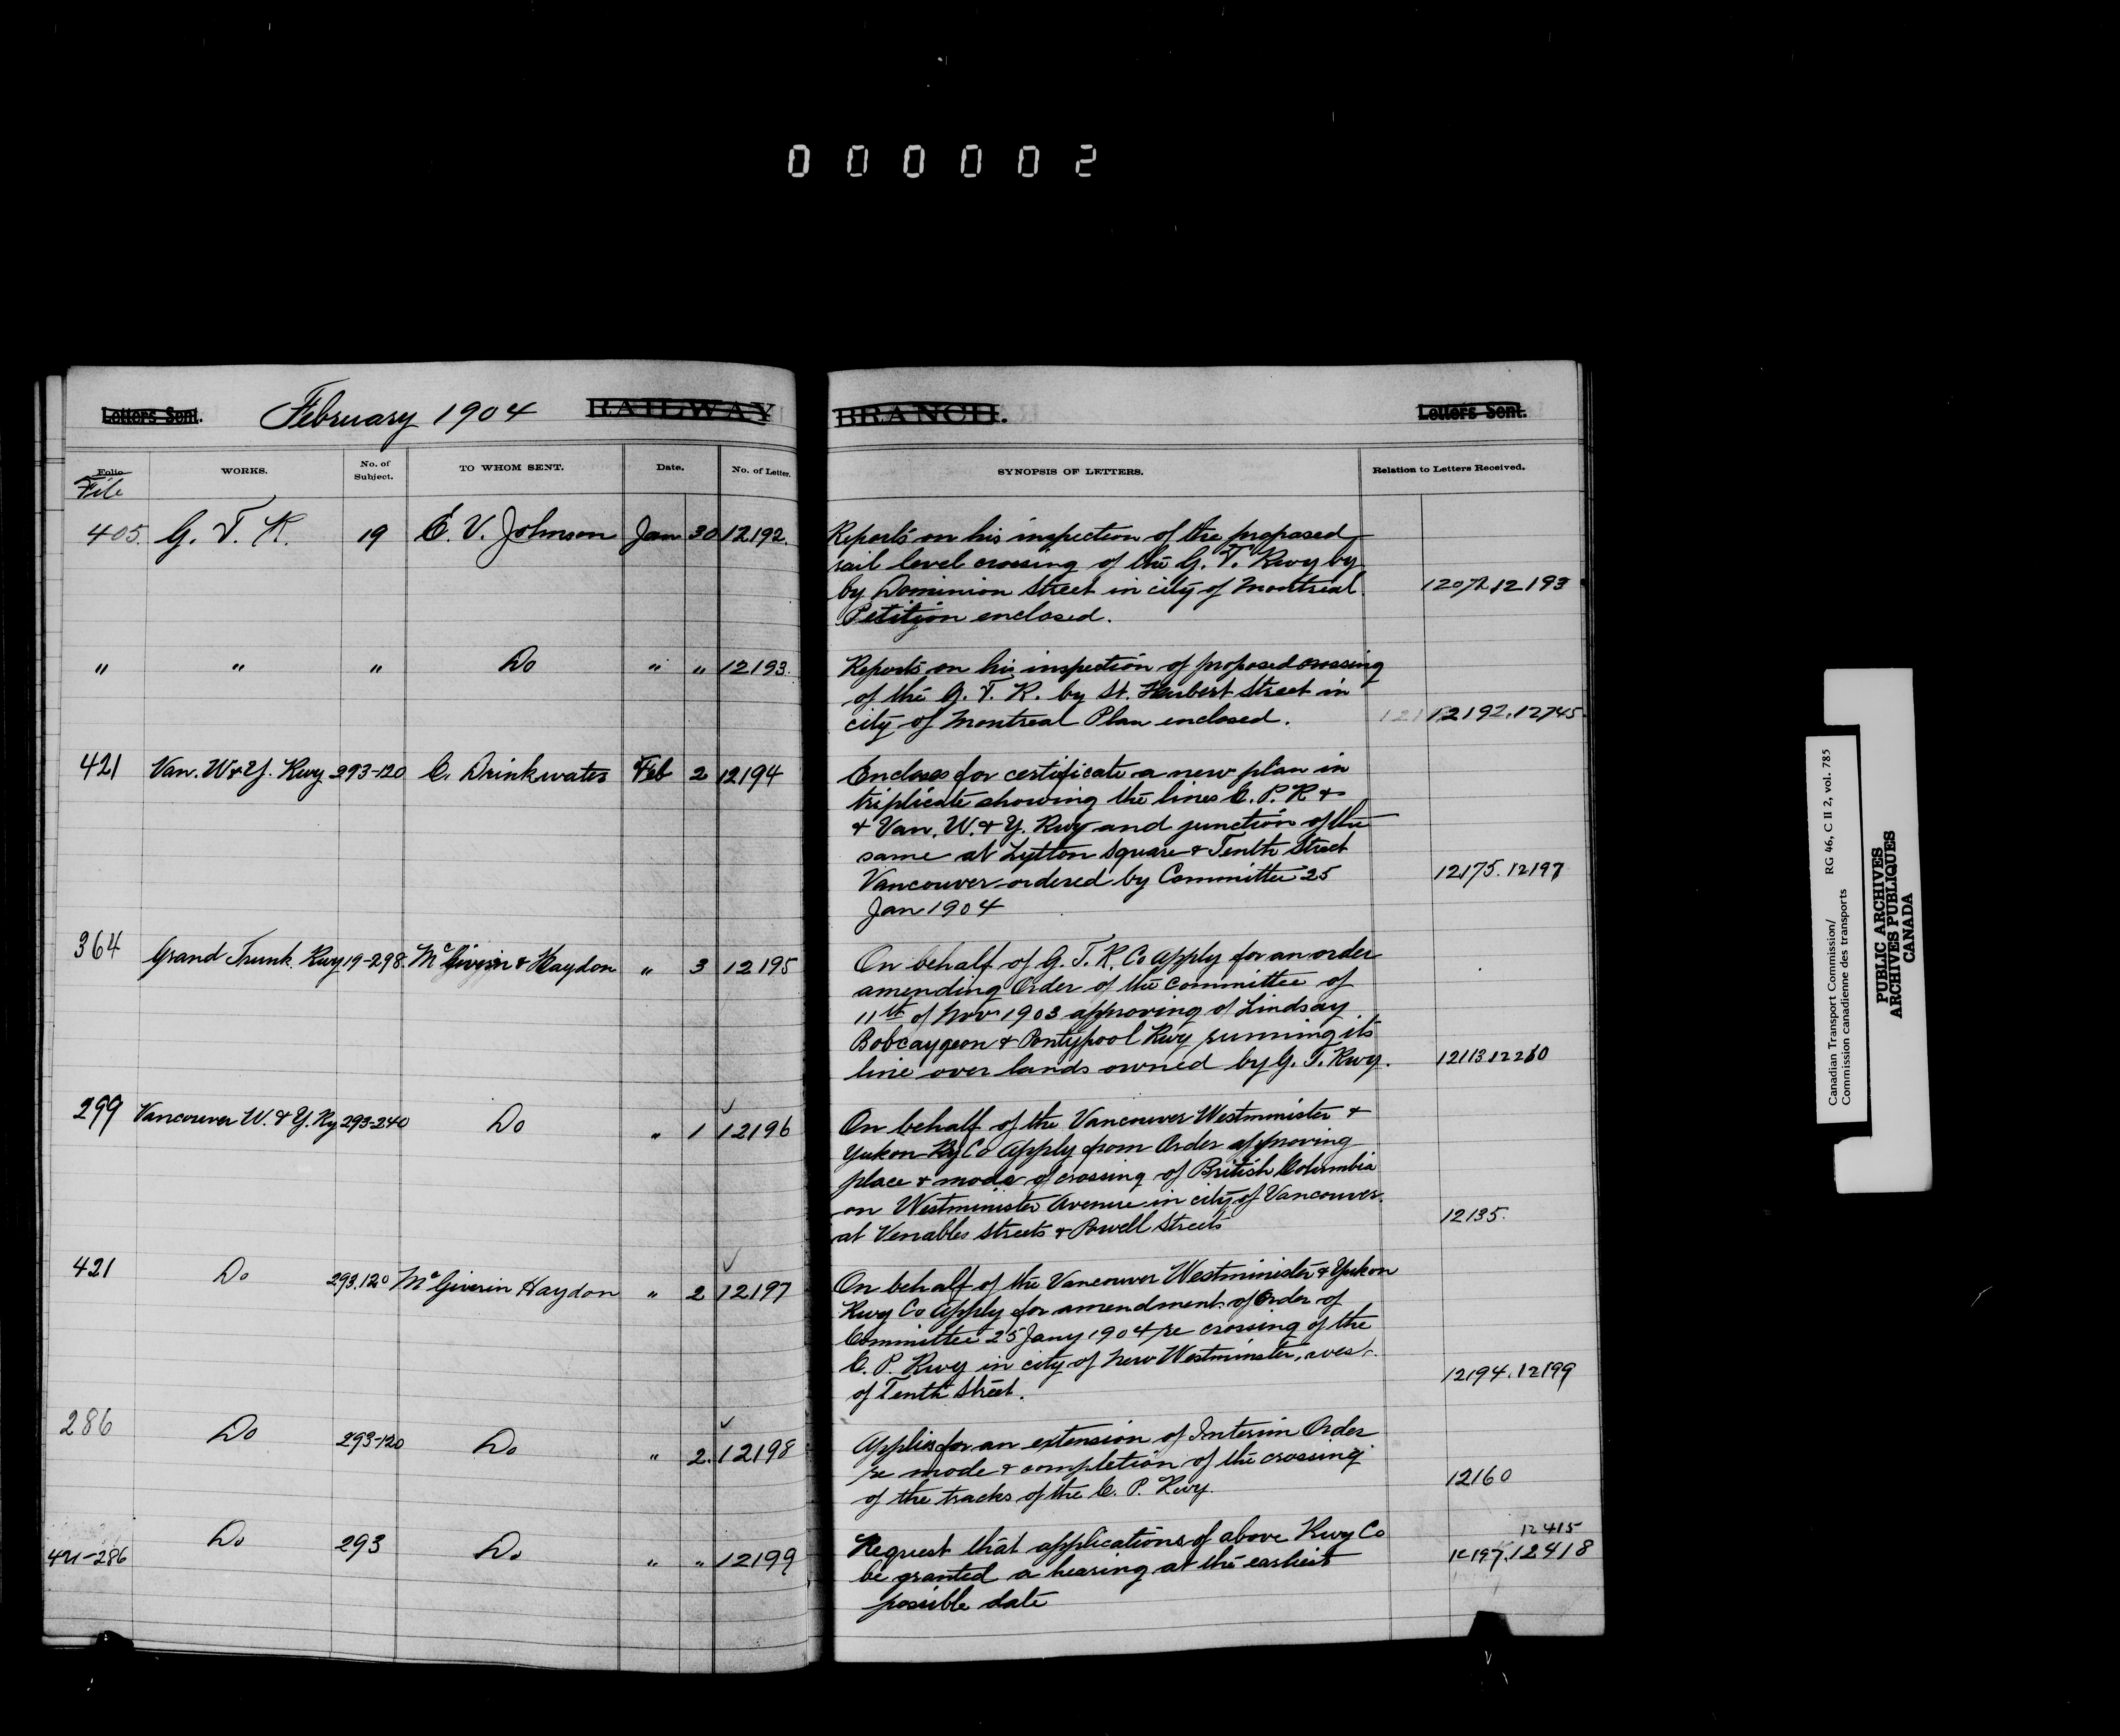 000002
Letters Sent. February 1904 RAILWAY BRANCH. Letters Sent.
Folio File WORKS. No. of Subject. TO WHOM SENT. Date. No. of Letter. SYNOPSIS OF LETTERS. Relation to Letters Received.
405. G. T. R. 19 E. V. Johnson Jan 30 12192.
Reports on his inspection of the proposed
rail level crossing of the G. T. Rwy by
by Dominion Street in city of Montreal. 12072.12193
Petition enclosed.
" " " Do " " 12193.
Reports on his inspection of proposed crossing
of the G. T. R. by St. Hubert Street in
city of Montreal Plan enclosed. 12192.12745.
421 Van. W & Y. Rwy 293-120 C. Drinkwater Feb 2 12194
Encloses for certificate a new plan in
triplicate showing the lines C. P. R &
& Van. W. & Y. Rwy and junction of the
same at Lytton Square & Tenth Street
Vancouver ordered by Committee 25 12175.12197
Jan 1904
364 Grand Trunk. Rwy 19-298. McGiverin & Haydon " 3 12195
On behalf of G. T. R. Co apply for an order
amending Order of the Committee of
11th of Nov 1903 approving of Lindsay
Bobcaygeon & Pontypool Rwy running its
line over lands owned by G. T. Rwy. 12113.12260
299 Vancouver W. & Y. Ry 293-240 Do " 1 12196
On behalf of the Vancouver Westminister &
Yukon Ry Co Apply from Order approving
place & mode of crossing of British Columbia
on Westminister Avenue in city of Vancouver.
at Venables Streets & Powell Streets 12135.
421 Do 293.120 McGiverin Haydon " 2 12197
On behalf of the Vancouver Westminister & Yukon
Rwy Co Apply for amendment of Order of
Committee 25 Jany 1904 re crossing of the
C. P. Rwy in city of New Westminster, west.
of Tenth Street. 12194.12199
286 Do 293-120 Do " 2. 12198
Applies for an extension of Interim Order
re mode & completion of the crossing
of the tracks of the C. P. Rwy. 12160
421-286 Do 293 Do " " 12199
Request that applications of above Rwy Co 12415
be granted a hearing at the earliest 12197.12418
possible date
Canadian Transport Commission/ RG 46, C II 2, vol. 785
Commission canadienne des transports
PUBLIC ARCHIVES
ARCHIVES PUBLIQUES
CANADA